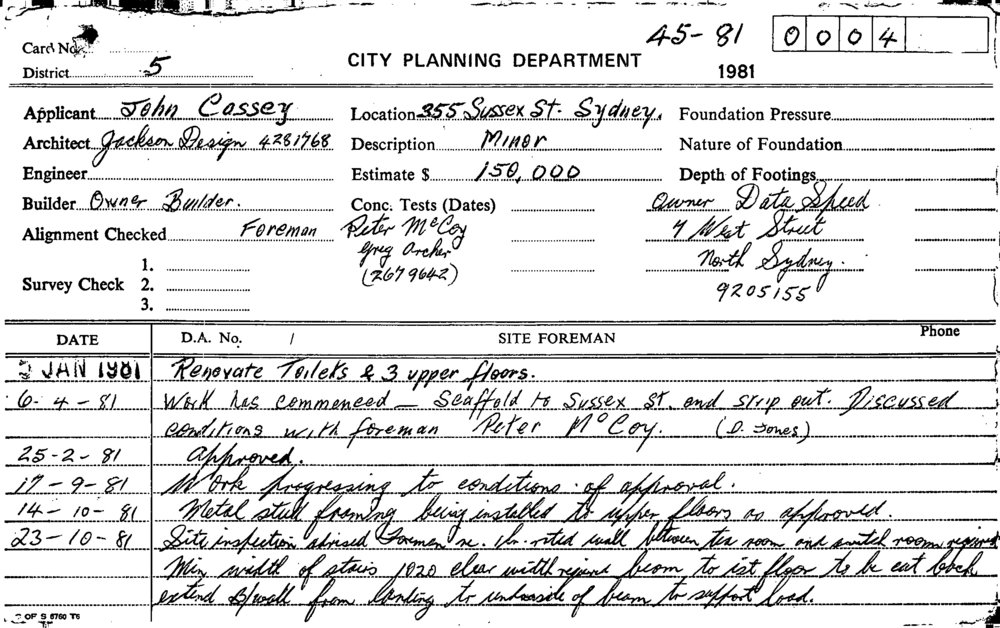 45-81 0 0 0 4
Card No.
District 5
CITY PLANNING DEPARTMENT
1981
Applicant John Cassey
Location 355 Sussex St. Sydney.
Foundation Pressure
Architect Jackson Design 4281768
Description Minor
Nature of Foundation
Engineer
Estimate $ 150,000
Depth of Footings
Builder Owner Builder.
Conc. Tests (Dates)
Owner Data Speed
Alignment Checked Foreman Peter McCoy
7 West Street
Greg Archer
North Sydney.
Survey Check 1. 2. 3.
(267 9642)
9205155
DATE D.A. No. / SITE FOREMAN Phone
5 JAN 1981 Renovate Toilets & 3 upper floors.
6-4-81 Work has commenced — Scaffold to Sussex St. and strip out. Discussed
conditions with foreman Peter McCoy. (D. Jones)
25-2-81 Approved.
17-9-81 Work progressing to conditions of approval.
14-10-81 Metal stud framing being installed to upper floors as approved.
23-10-81 Site inspection advised Foreman re. 1hr. rated wall between tea room and switch room required
Min width of stairs 1020 clear width required beam to 1st floor to be cut back
extend B/wall from landing to underside of beam to support load.
OF S 6760 T6